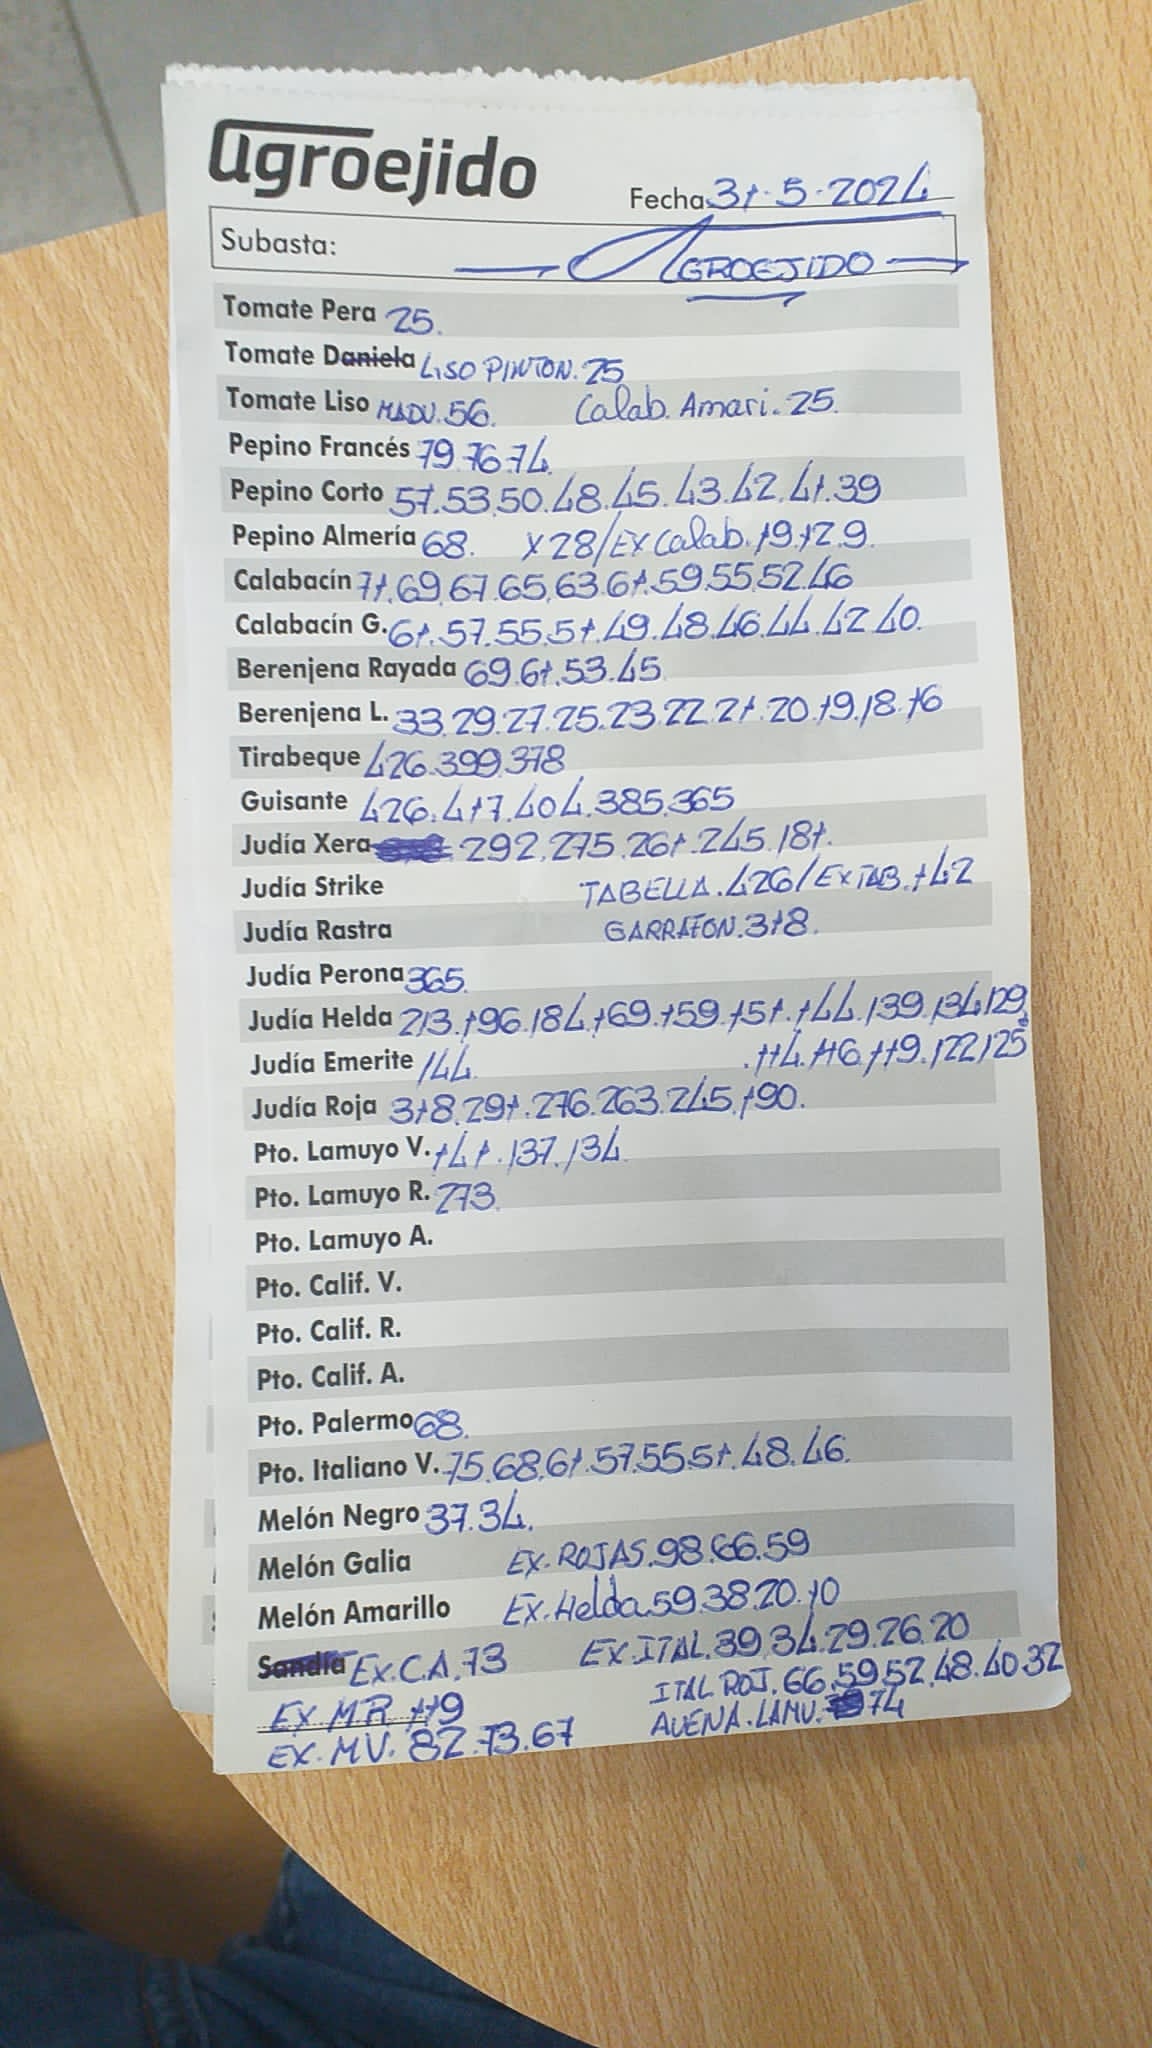 agroejido
Fecha 31-5-2024
Subasta: AGROEJIDO
Tomate Pera 25.
Tomate Daniela LISO PINTON. 25
Tomate Liso MADU. 56. Calab. Amari. 25.
Pepino Francés 79.76.74.
Pepino Corto 57.53.50.48.45.43.42.41.39
Pepino Almería 68. X28/EX Calab. 19.12.9.
Calabacín 71.69.67.65.63.61.59.55.52.46
Calabacín G. 61.57.55.51.49.48.46.44.42.40.
Berenjena Rayada 69.61.53.45
Berenjena L. 33.29.27.25.23.22.21.20.19.18.16
Tirabeque 426.399.378
Guisante 426.417.404.385.365
Judía Xera 292.275.261.245.181.
Judía Strike TABELLA. 426/EX TAB. 142
Judía Rastra GARRAFON. 318.
Judía Perona 365.
Judía Helda 213.196.184.169.159.151.144.139.134.129.
Judía Emerite 144. .114.116.119.122.125
Judía Roja 318.291.276.263.245.190.
Pto. Lamuyo V. 141.137.134.
Pto. Lamuyo R. 273.
Pto. Lamuyo A.
Pto. Calif. V.
Pto. Calif. R.
Pto. Calif. A.
Pto. Palermo 68.
Pto. Italiano V. 75.68.61.57.55.51.48.46.
Melón Negro 37.34.
Melón Galia EX. ROJAS. 98.66.59
Melón Amarillo EX. Helda 59.38.20.10
Sandía EX. C.A. 73 EX. ITAL. 39.34.29.26.20
EX M R 119 ITAL ROJ. 66.59.52.48.40.32
EX. M V. 82.73.67 AUENA. LAMU. 74